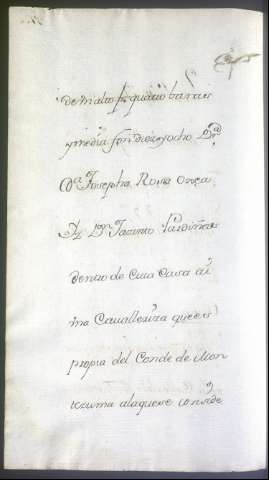 de malto quatro baras
y media son diez y ocho Dª
Dª Josepha Rosa Orga
Dn Jacinto Sardiñas
dentro de Cuia Casa ai
ina Cavalleriza que es
propia del Conde de Mon
tezuma alaquese conside